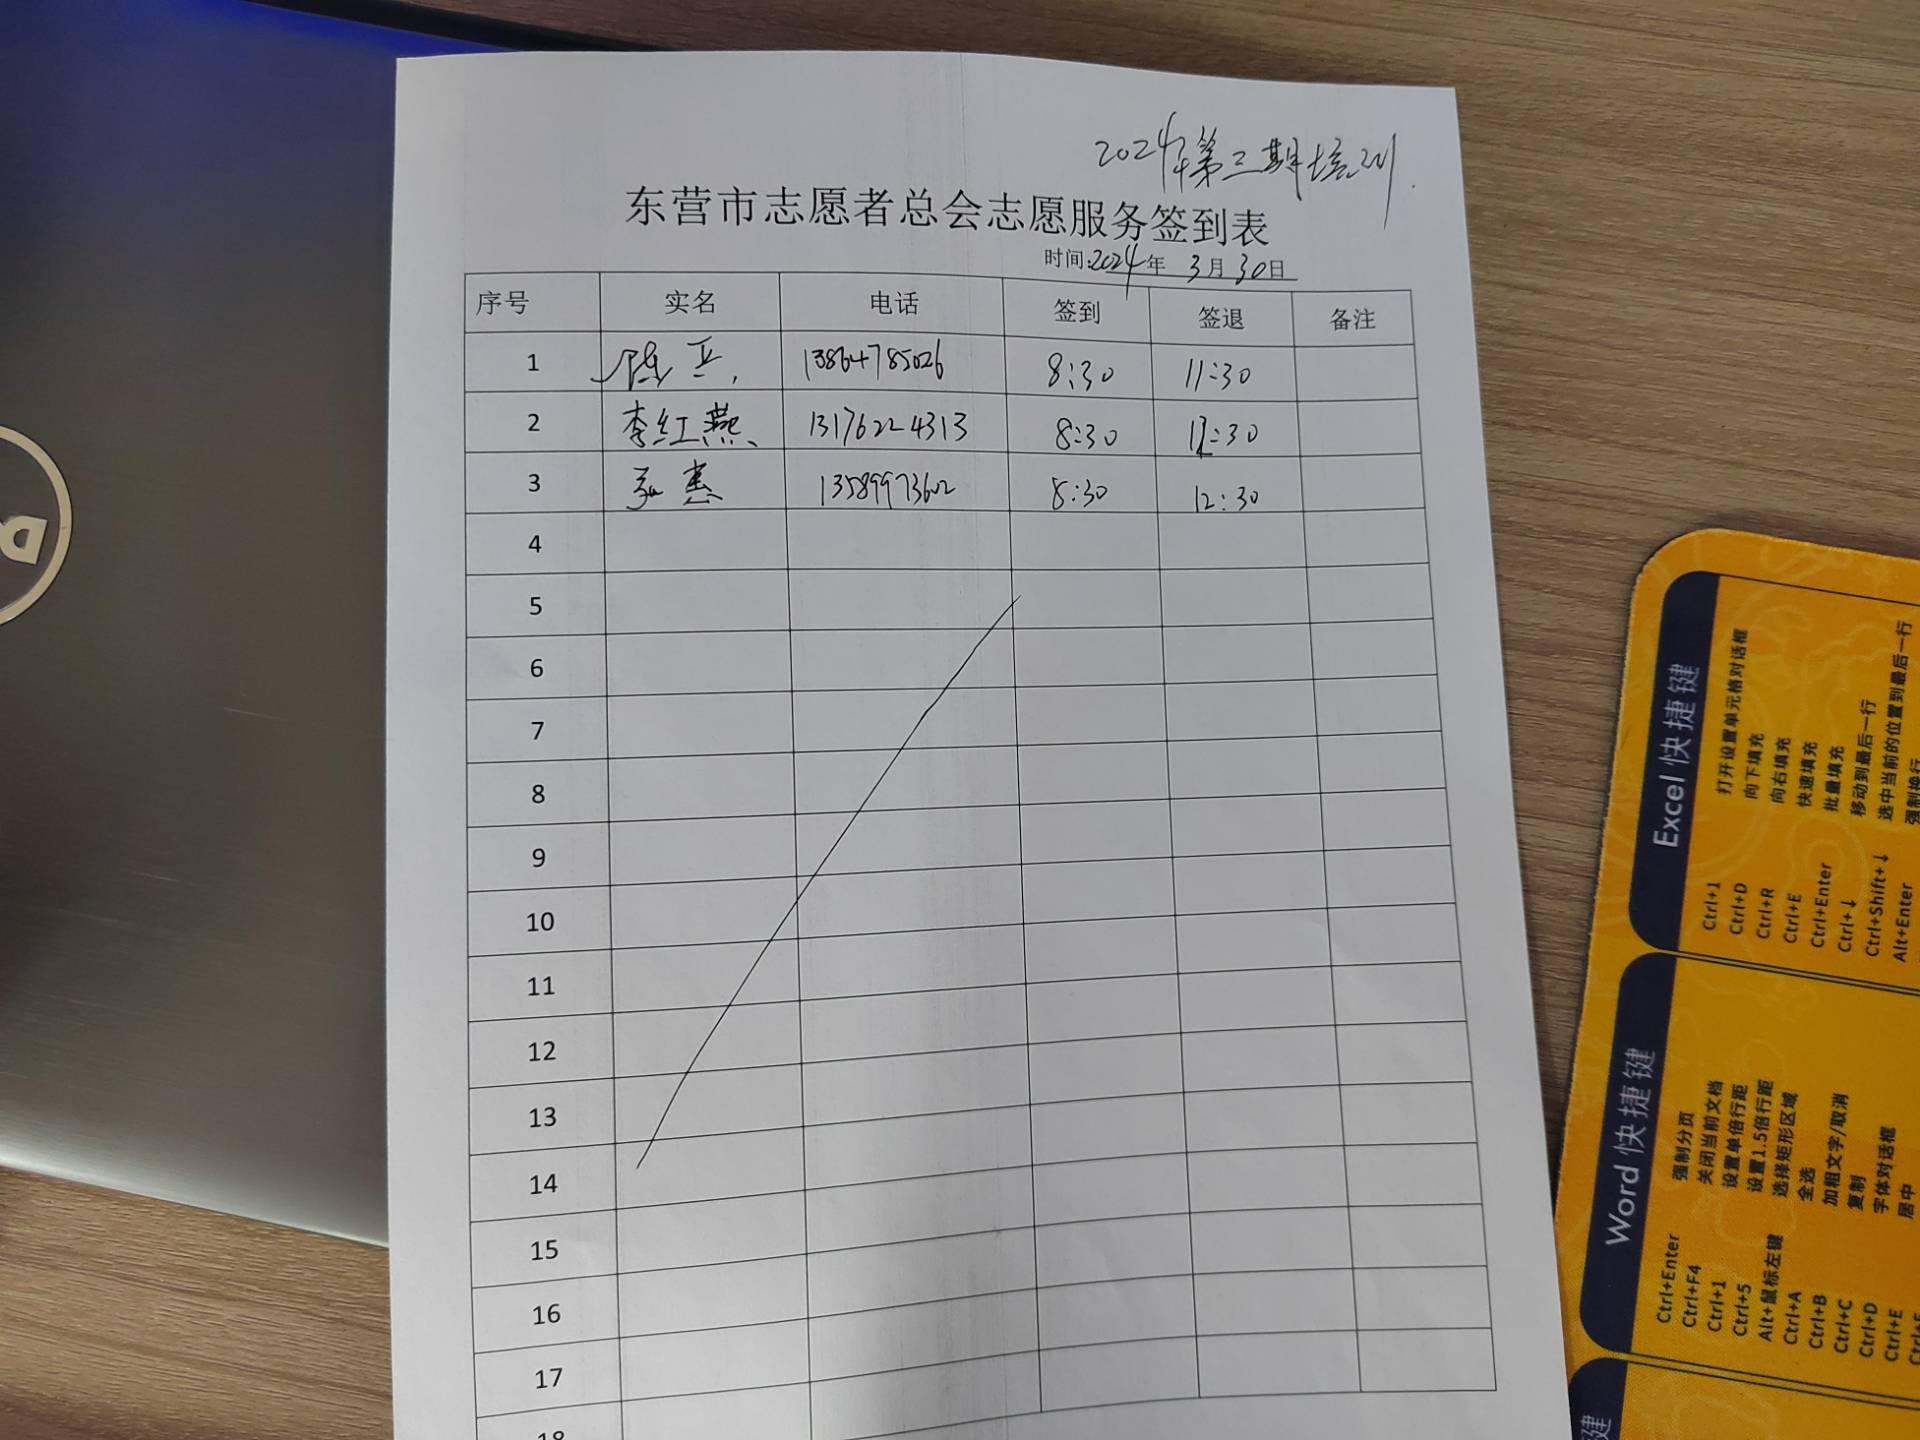 2024年第三期培训
东营市志愿者总会志愿服务签到表
时间:2024年 3月30日
序号 实名 电话 签到 签退 备注
1 陈 13864785026 8:30 11:30
2 李红燕 13176224313 8:30 12:30
3 惠 13589973602 8:30 12:30
4
5
6
7
8
9
10
11
12
13
14
15
16
17
18
Excel 快捷键
Ctrl+1 打开设置单元格对话框
Ctrl+D 向下填充
Ctrl+R 向右填充
Ctrl+E 快速填充
Ctrl+Enter 批量填充
Ctrl+↓ 移动到最后一行
Ctrl+Shift+↓ 选中当前的位置到最后一行
Alt+Enter 强制换行
Word 快捷键
Ctrl+Enter 强制分页
Ctrl+F4 关闭当前文档
Ctrl+1 设置单倍行距
Ctrl+5 设置1.5倍行距
Alt+鼠标左键 选择矩形区域
Ctrl+A 全选
Ctrl+B 加粗文字/取消
Ctrl+C 复制
Ctrl+D 字体对话框
Ctrl+E 居中
键